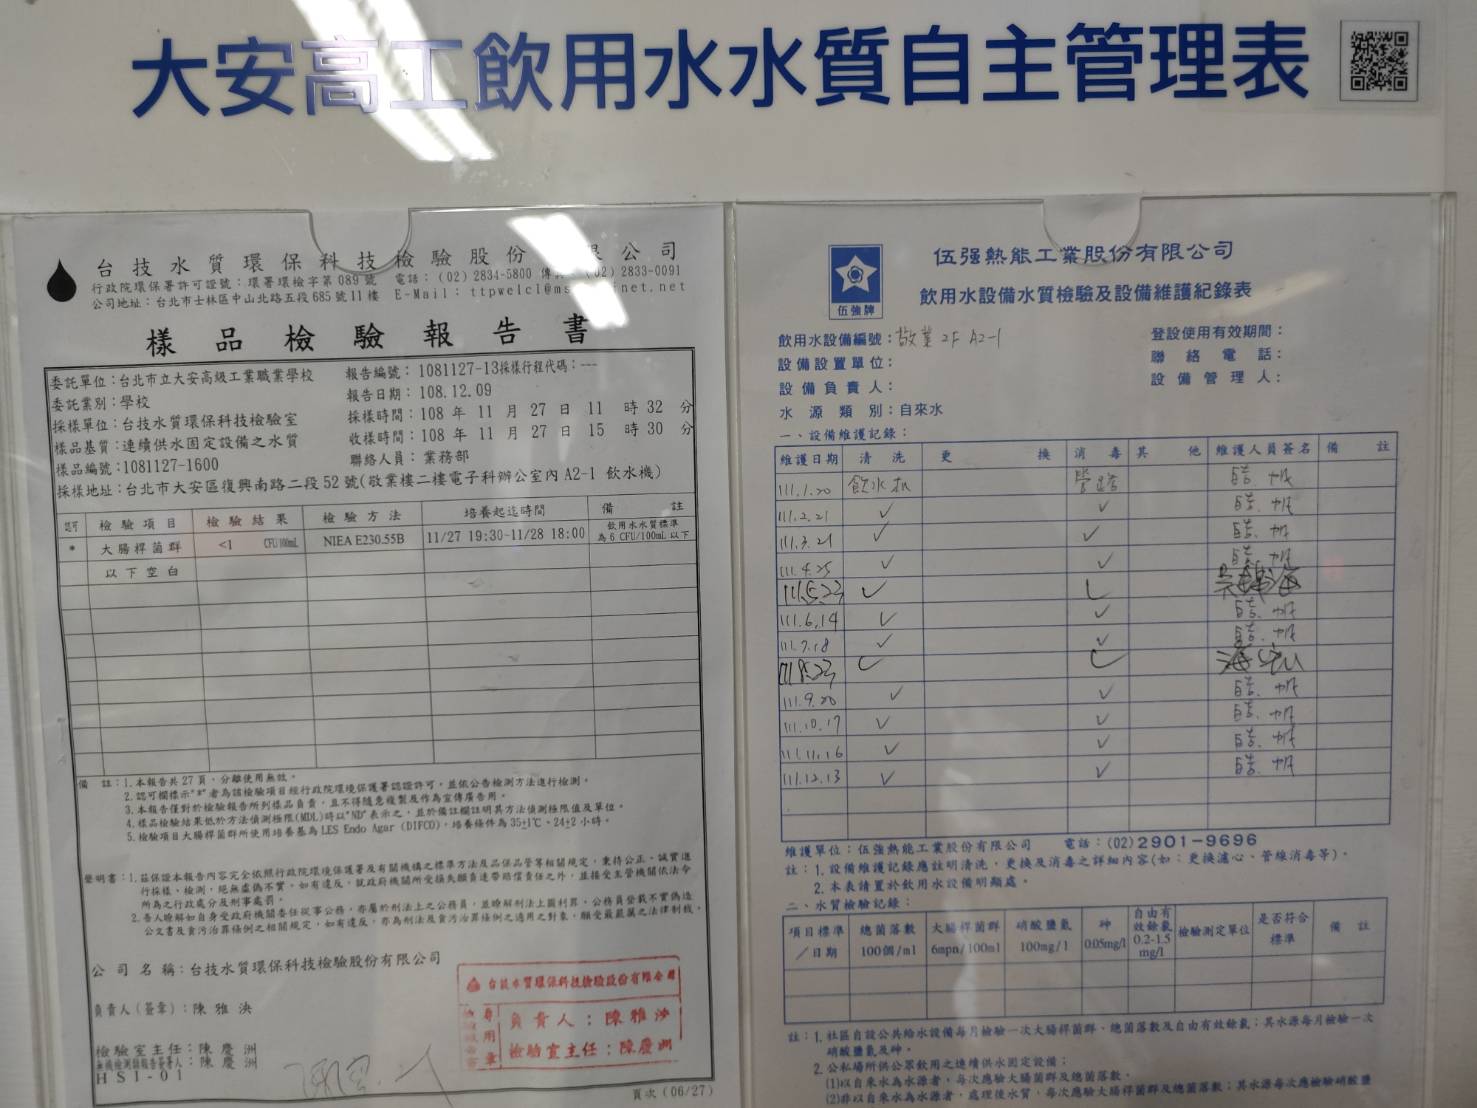 大安高工飲用水水質自主管理表
台技水質環保科技檢驗股份 限公司
行政院環保署許可證號：環署環檢字第089號 電話：(02)2834-5800 傳 (02)2833-0091
公司地址：台北市士林區中山北路五段685號11樓 E-Mail：ttpwelcl@ms inet.net
樣品檢驗報告書
委託單位：台北市立大安高級工業職業學校 報告編號：1081127-13採樣行程代碼：---
委託業別：學校 報告日期：108.12.09
採樣單位：台技水質環保科技檢驗室 採樣時間：108 年 11 月 27 日 11 時 32 分
樣品基質：連續供水固定設備之水質 收樣時間：108 年 11 月 27 日 15 時 30 分
樣品編號：1081127-1600 聯絡人員：業務部
採樣地址：台北市大安區復興南路二段52號(敬業樓二樓電子科辦公室內A2-1 飲水機)
認可 檢驗項目 檢驗結果 檢驗方法 培養起迄時間 備註
* 大腸桿菌群 <1 CFU/100mL NIEA E230.55B 11/27 19:30~11/28 18:00 飲用水水質標準
為 6 CFU/100mL 以下
以下空白
備 註：1.本報告共27頁，分離使用無效。
2.認可欄標示"*"者為該檢驗項目經行政院環境保護署認證許可，並依公告檢測方法進行檢測。
3.本報告僅對於檢驗報告所列樣品負責，且不得隨意複製及作為宣傳廣告用。
4.樣品檢驗結果低於方法偵測極限(MDL)時以"ND"表示之，並於備註欄註明其方法偵測極限值及單位。
5.檢驗項目大腸桿菌群所使用培養基為LES Endo Agar (DIFCO)，培養條件為35±1℃、24±2小時。
聲明書：1.茲保證本報告內容完全依照行政院環境保護署及有關機構之標準方法及品保品管等相關規定，秉持公正、誠實進
行採樣、檢測，絕無虛偽不實，如有違反，就政府機關所受損失願負連帶賠償責任之外，並接受主管機關依法令
所為之行政處分及刑事處罰。
2.吾人瞭解如自身受政府機關委任從事公務，亦屬於刑法上之公務員，並瞭解刑法上圖利罪、公務員登載不實偽造
公文書及貪污治罪條例之相關規定，如有違反，亦為刑法及貪污治罪條例之適用之對象，願受最嚴厲之法律制裁。
公司名稱：台技水質環保科技檢驗股份有限公司
負責人(簽章)：陳雅泱
檢驗室主任：陳慶洲
無機檢測類報告簽署人：陳慶洲
HSI-01
台技水質環保科技檢驗股份有限公司
負責人：陳雅泱
檢驗室主任：陳慶洲
專用章
頁次(06/27)
伍強牌
伍强熱能工業股份有限公司
飲用水設備水質檢驗及設備維護紀錄表
飲用水設備編號：敬業 2F A2-1 登設使用有效期間：
設備設置單位： 聯絡電話：
設備負責人： 設備管理人：
水源類別：自來水
一、設備維護記錄：
維護日期 清洗 更換 消毒 其他 維護人員簽名 備註
111.1.20 飲水机 管路
111.2.21 ✓ ✓
111.3.21 ✓ ✓
111.4.25 ✓ ✓
111.5.23 ✓ ✓
111.6.14 ✓ ✓
111.7.18 ✓ ✓
111.8.23 ✓ ✓
111.9.20 ✓ ✓
111.10.17 ✓ ✓
111.11.16 ✓ ✓
111.12.13 ✓ ✓
維護單位：伍強熱能工業股份有限公司 電話：(02)2901-9696
註：1.設備維護記錄應註明清洗、更換及消毒之詳細內容(如：更換濾心、管線消毒等)。
2.本表請置於飲用水設備明顯處。
二、水質檢驗記錄：
項目標準／日期 總菌落數 100個/ml 大腸桿菌群 6mpa/100ml 硝酸鹽氮 100mg/l 砷 0.05mg/l 自由有效餘氯 0.2-1.5 mg/l 檢驗測定單位 是否符合標準 備註
註：1.社區自設公共給水設備每月檢驗一次大腸桿菌群、總菌落數及自由有效餘氯；其水源每月檢驗一次
硝酸鹽氮及砷。
2.公私場所供公眾飲用之連續供水固定設備：
(1)以自來水為水源者，每次應驗大腸桿菌群及總菌落數。
(2)非以自來水為水源者，處理後水質，每次應驗大腸桿菌群及總菌落數；其水源每次應檢驗硝酸鹽